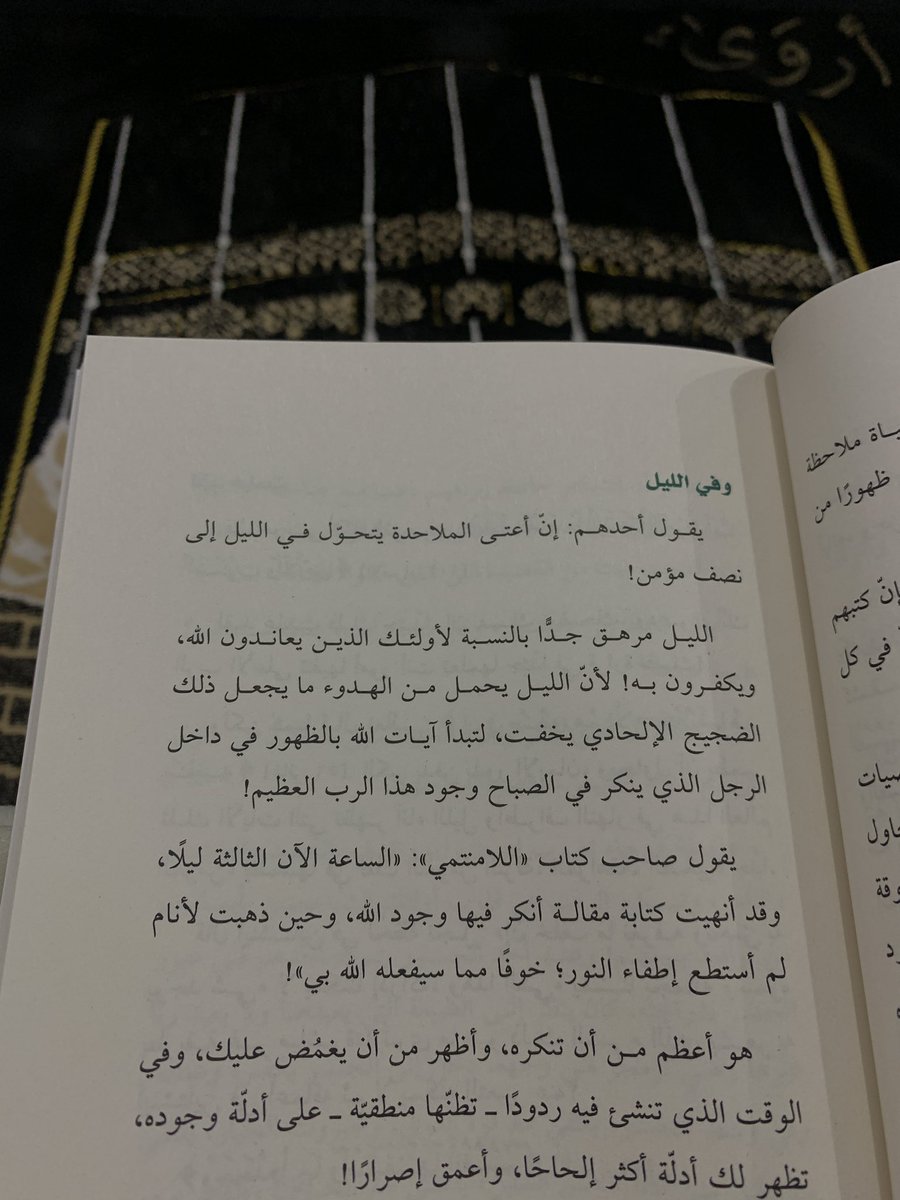 أروى
وفي الليل
يقول أحدهم: إنّ أعتى الملاحدة يتحوّل في الليل إلى
نصف مؤمن!
الليل مرهق جدًّا بالنسبة لأولئك الذين يعاندون الله،
ويكفرون به! لأنّ الليل يحمل من الهدوء ما يجعل ذلك
الضجيج الإلحادي يخفت، لتبدأ آيات الله بالظهور في داخل
الرجل الذي ينكر في الصباح وجود هذا الرب العظيم!
يقول صاحب كتاب «اللامنتمي»: «الساعة الآن الثالثة ليلًا،
وقد أنهيت كتابة مقالة أنكر فيها وجود الله، وحين ذهبت لأنام
لم أستطع إطفاء النور؛ خوفًا مما سيفعله الله بي»!
هو أعظم من أن تنكره، وأظهر من أن يغمُض عليك، وفي
الوقت الذي تنشئ فيه ردودًا ـ تظنّها منطقيّة ـ على أدلّة وجوده،
تظهر لك أدلّة أكثر إلحاحًا، وأعمق إصرارًا!
ملاحظة
ظهورًا من
كتبهم
في كل